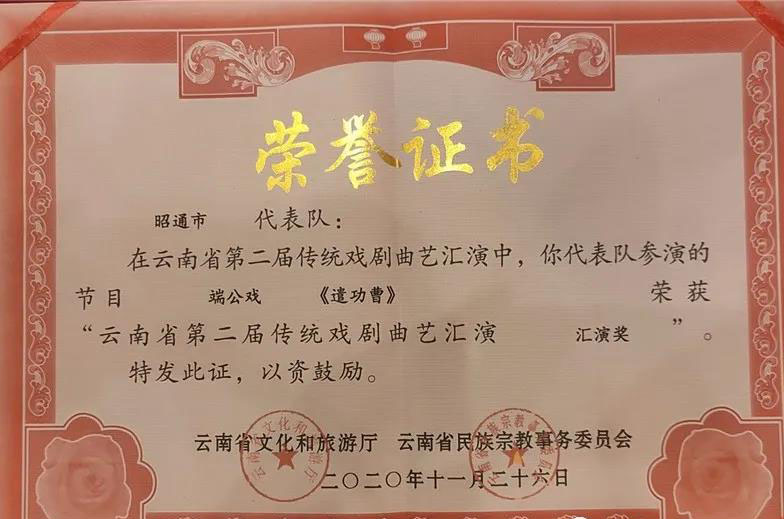 荣誉证书
昭通市 代表队：
在云南省第二届传统戏剧曲艺汇演中，你代表队参演的
节目 端公戏 《遣功曹》 荣获
“云南省第二届传统戏剧曲艺汇演 汇演奖 ”。
特发此证，以资鼓励。
云南省文化和旅游厅 云南省民族宗教事务委员会
二〇二〇年十一月二十六日